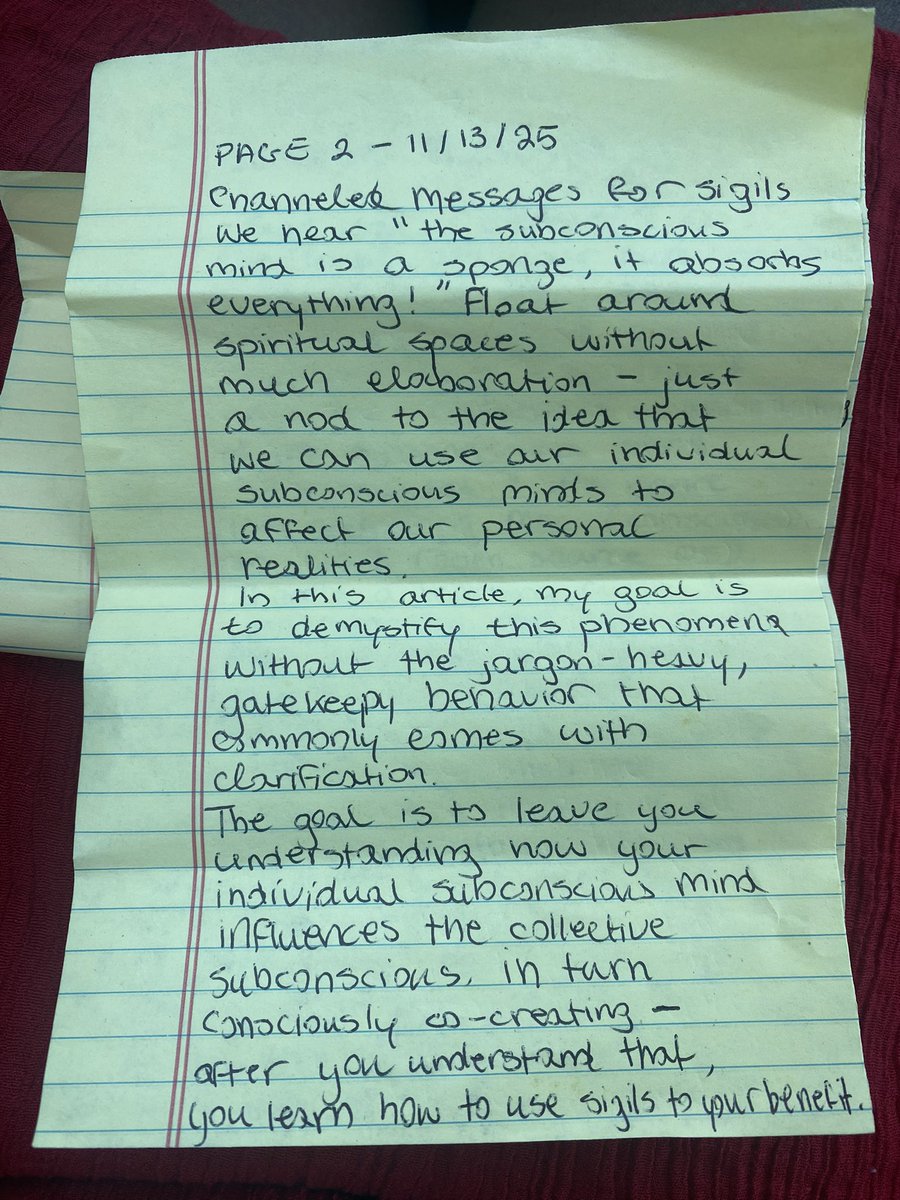 PAGE 2 - 11/13/25
Channeled messages for sigils
We hear "the subconscious
mind is a sponge, it absorbs
everything!" Float around
spiritual spaces without
much elaboration - just
a nod to the idea that
we can use our individual
subconscious minds to
affect our personal
realities.
In this article, my goal is
to demystify this phenomena
without the jargon-heavy,
gatekeepy behavior that
commonly comes with
clarification.
The goal is to leave you
understanding how your
individual subconscious mind
influences the collective
subconscious, in turn
consciously co-creating -
after you understand that,
you learn how to use sigils to your benefit.